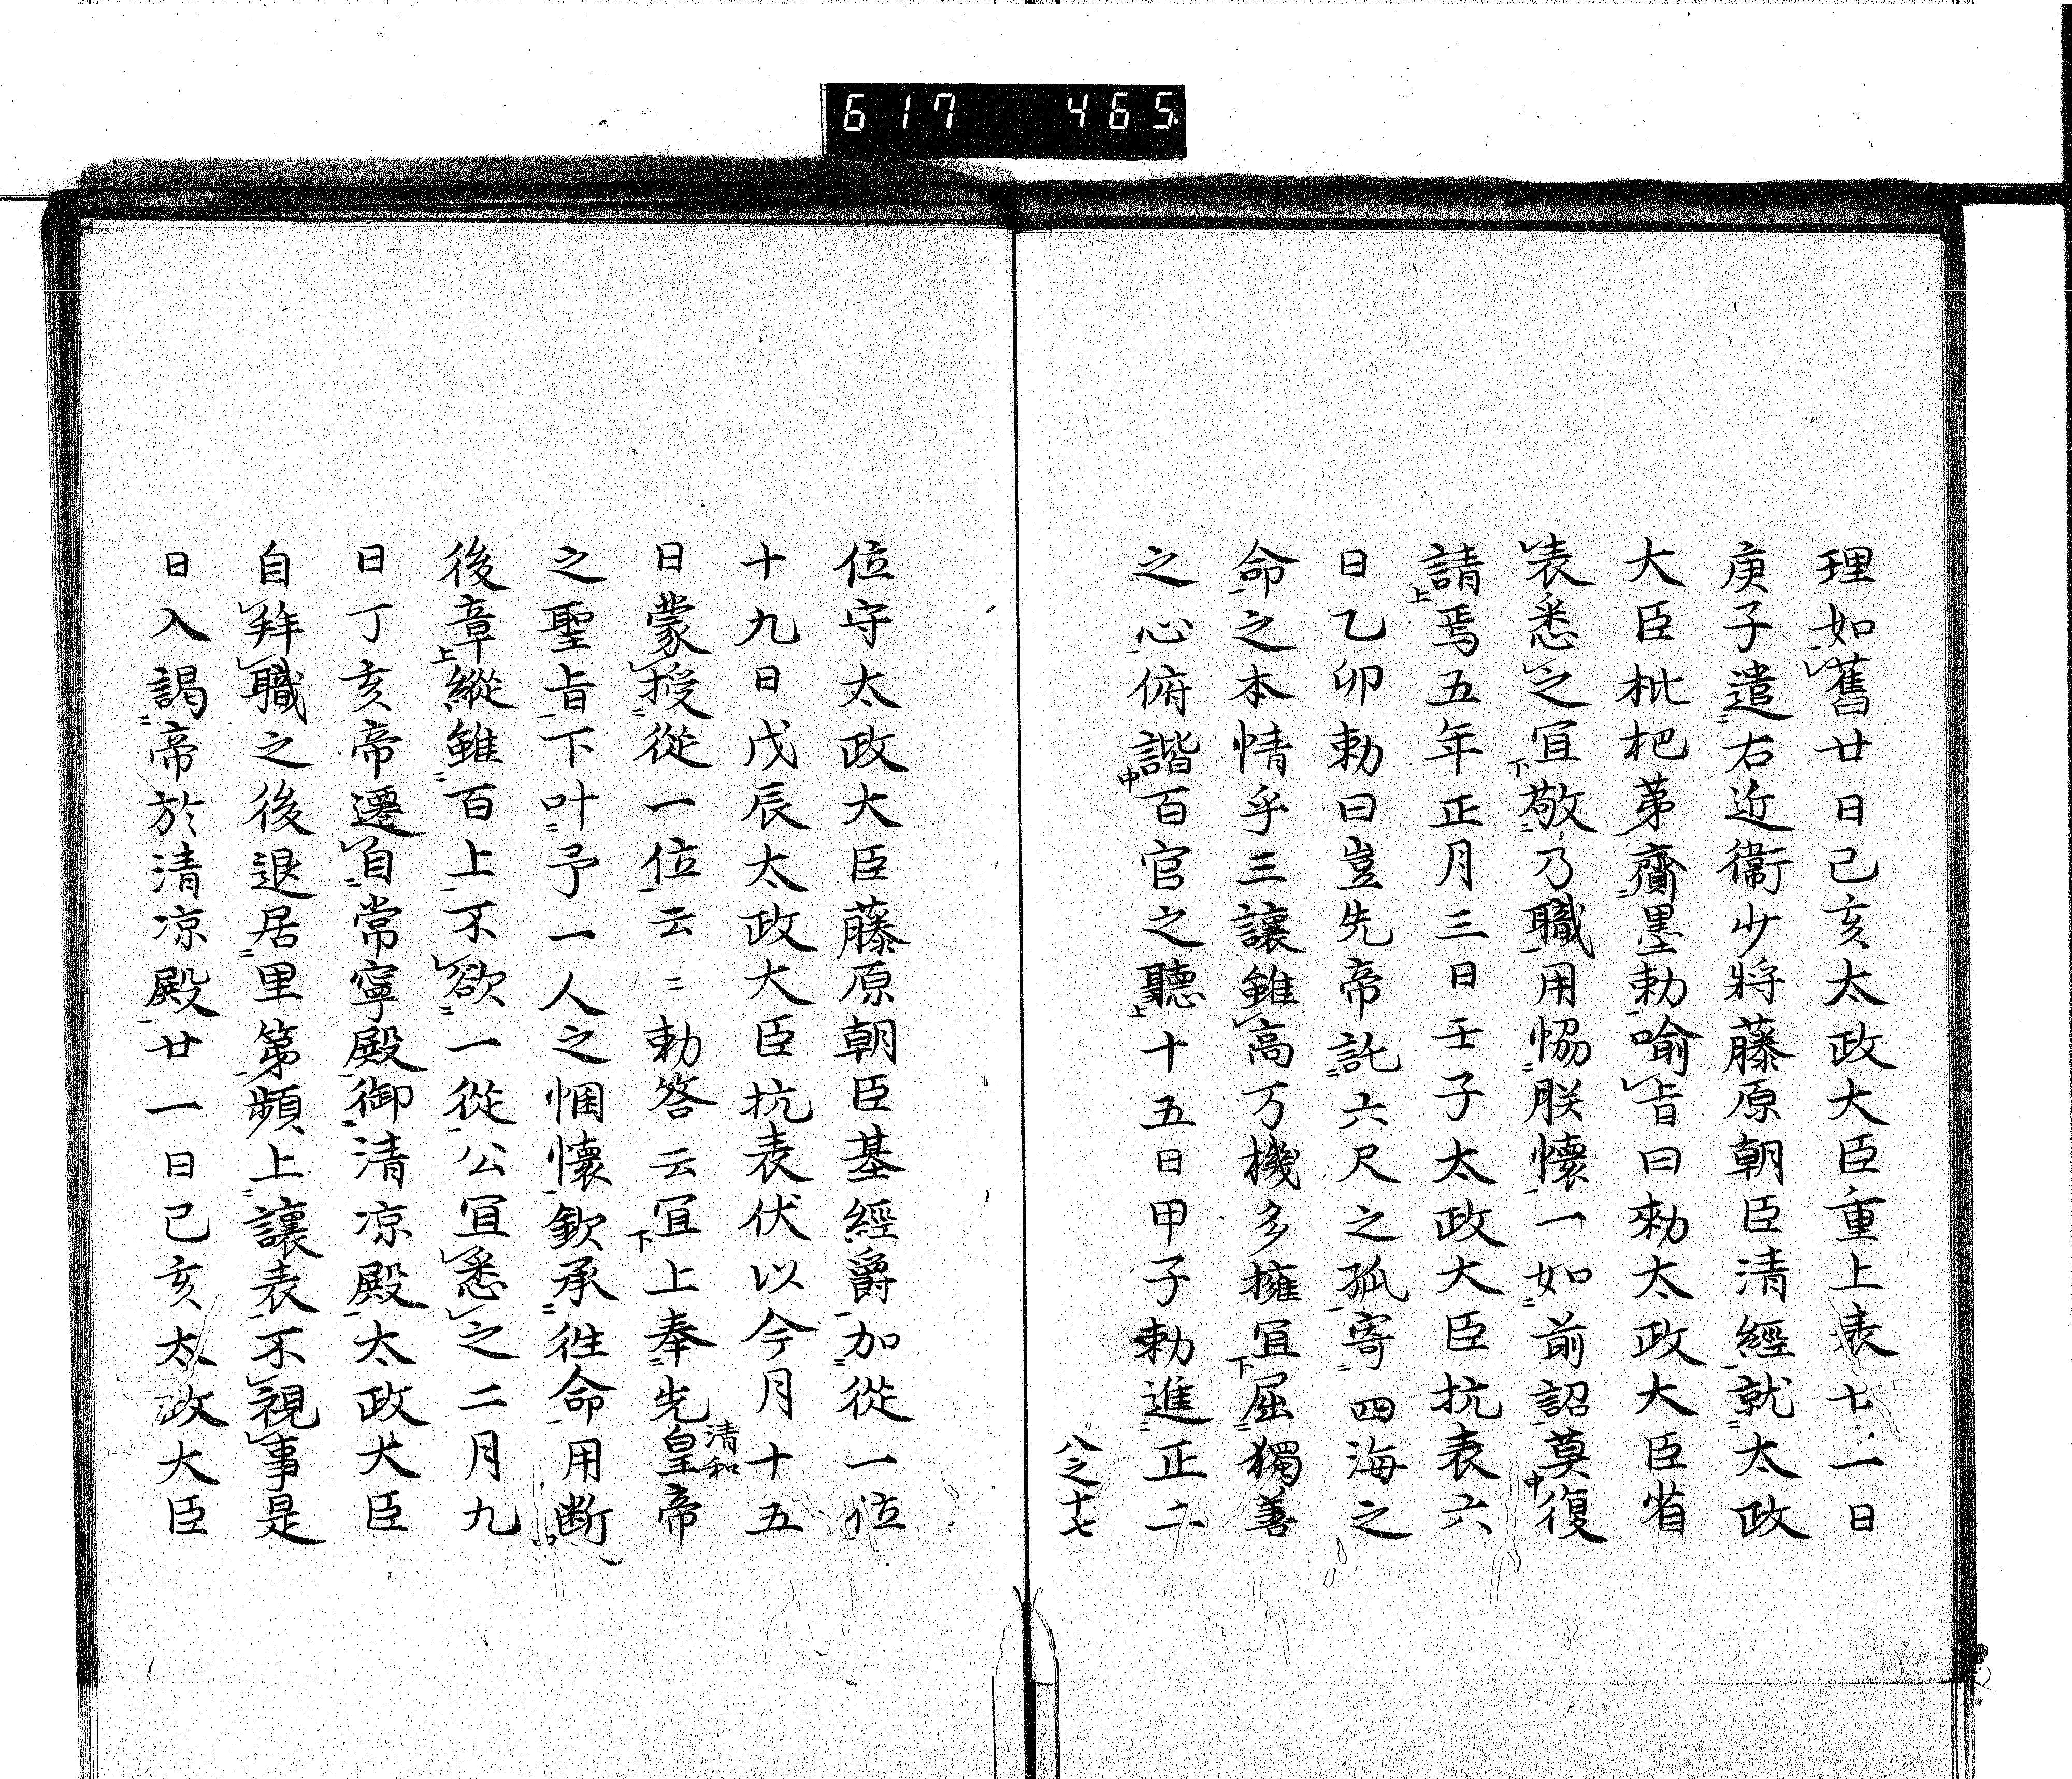 617 465
理如舊廿日己亥太政大臣重上表七一日
庚子遣右近衛少將藤原朝臣清經就太政
大臣枇杷苐齎墨勅喻旨曰勅太政大臣省
表悉之宜敬乃職用恊朕懷一如前詔莫復
請焉五年正月三日壬子太政大臣抗表六
日乙卯勅曰豈先帝託六尺之孤寄四海之
命之本情乎三讓雖高万機多擁宜屈獨善
之心俯諧百官之聽十五日甲子勅進正二
八之十七
位守太政大臣藤原朝臣基經爵加從一位
十九日戊辰太政大臣抗表伏以今月十五
日蒙授從一位云〻勅答云宜上奉先皇帝
清和
之聖旨下叶予一人之悃懷欽承徃命用断
後章縱雖百上不欲一從公宜悉之二月九
日丁亥帝遷自常寧殿御清凉殿太政大臣
自拜職之後退居里第頻上讓表不視事是
日入謁帝於清凉殿廿一日己亥太政大臣